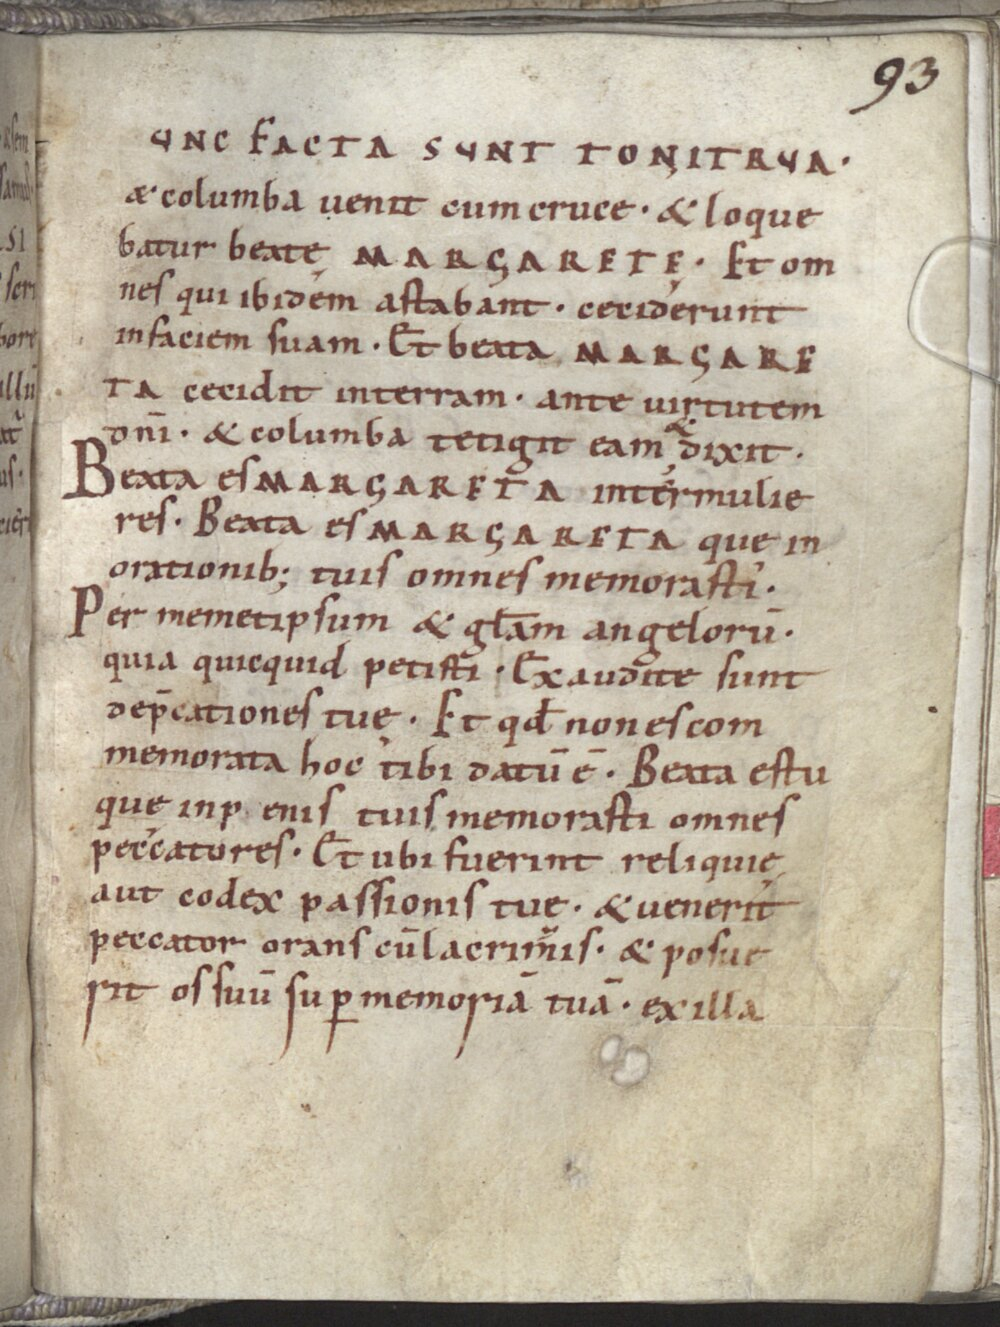 93
UNC FACTA SUNT TONITRUA·
& columba uenit cum cruce· & loque
batur beatę MARGARETĘ· Et om
nes qui ibidem astabant· ceciderunt
in faciem suam· Et beata MARGARE
TA cecidit in terram· ante uirtutem
dnī· & columba tetigit eam & dixit·
Beata es MARGARETA inter mulie
res· Beata es MARGARETA que in
orationib; tuis omnes memorasti·
Per memetipsum & glam̄ angelorū·
quia quicquid petisti· Exaudite sunt
dep̄cationes tuę· Et qđ non es com
memorata hoc tibi datū ē· Beata es tu
quę in p enis tuis memorasti omnes
peccatores· Et ubi fuerint reliquię
aut codex passionis tuę· & uenerit
peccator orans cū lacrimis· & posue
rit os suū sup memoriā tuā· ex illa